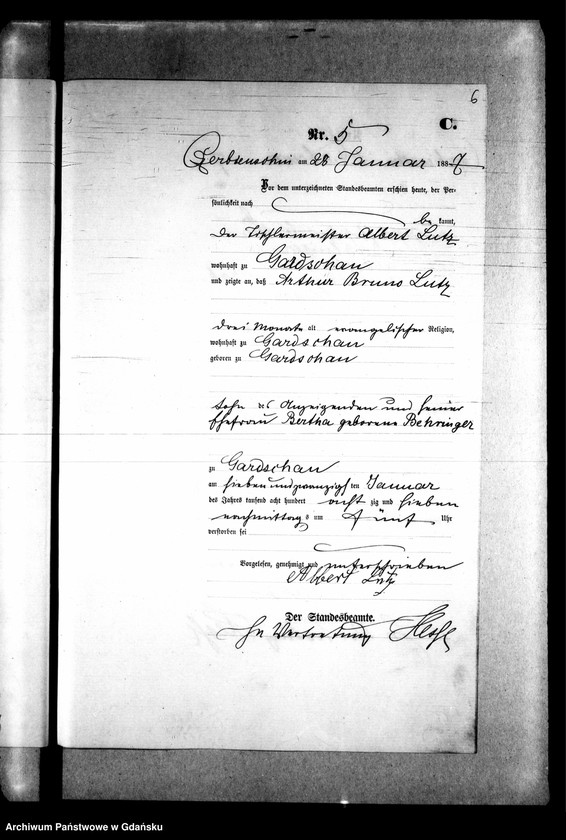 6
C.
Nr. 5
am 28 Januar 1887
Vor dem unterzeichneten Standesbeamten erschien heute, der Per-
sönlichkeit nach
be kannt,
der Tischlermeister Albert Lutz
wohnhaft zu Gardschau
und zeigte an, daß Arthur Bruno Lutz
drei Monate alt evangelischer Religion,
wohnhaft zu Gardschau
geboren zu Gardschau
Sohn des Anzeigenden und seiner
Ehefrau Bertha geborene Behringer
zu Gardschau
am sieben und zwanzigsten Januar
des Jahres tausend acht hundert acht zig und sieben
nachmittags um fünf Uhr
verstorben sei
Vorgelesen, genehmigt und unterschrieben
Albert Lutz
Der Standesbeamte.
In Vertretung
Archiwum Państwowe w Gdańsku